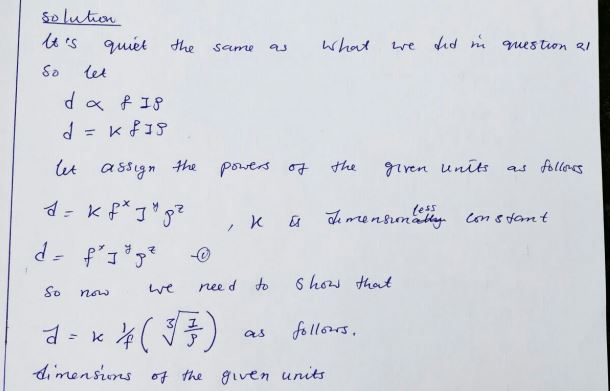 Solution
It's quiet the same as what we did in question a)
So let
d ∝ f I ρ
d = K f I ρ
let assign the powers of the given units as follows
d = K f^x I^y ρ^z , K is dimensionless constant
d = f^x I^y ρ^z —①
So now we need to show that
d = K 1/f (∛(I/ρ)) as follows.
dimensions of the given units